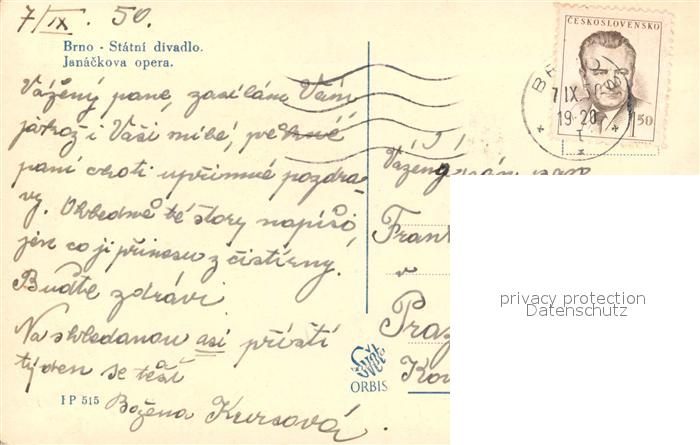 7/IX. 50.
Brno - Státní divadlo.
Janáčkova opera.
Vážený pane, zasílám Vám
jakož i Vaší milé,
paní choti upřímné pozdra-
vy. Ohledně té story napíši,
jen co ji přinesu z čistírny.
Buďte zdrávi
Na shledanou asi příští
týden se těší
Božena Kursová.
IP 515
ČESKOSLOVENSKO
1.50
BRNO
7.IX.50
19-20
Vážený pán
Frant
v
Praz
ORBIS
privacy protection
Datenschutz